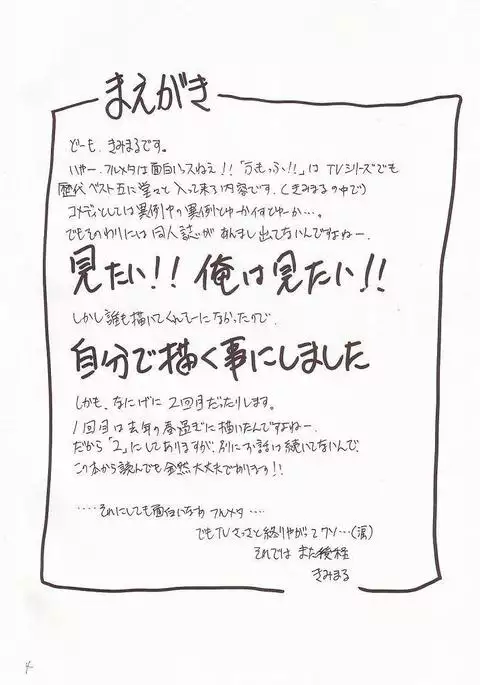 まえがき
どーも、きみまるです。
いやー、フルメタは面白いっスねえ!!「ふもっふ!!」はTVシリーズでも
歴代ベスト五に堂々と入って来る内容です。(きみまるの中で)
コメディとしては異例中の異例とゆーか何とゆーか…。
でもそのわりには同人誌があんまし出てないんですよねー。
見たい!! 俺は見たい!!
しかし誰も描いてくれそーになかったので、
自分で描く事にしました
しかも、なにげに2回目だったりします。
1回目は去年の春過ぎに描いたんですよねー。
だから「2」にしてありますが、別にお話は続いてないんで、
この本から読んでも全然大丈夫であります!!
……それにしても面白いなあ フルメタ….
でもTVさっさと終りやがってクソ…(涙)
それでは また後程
きみまる
4